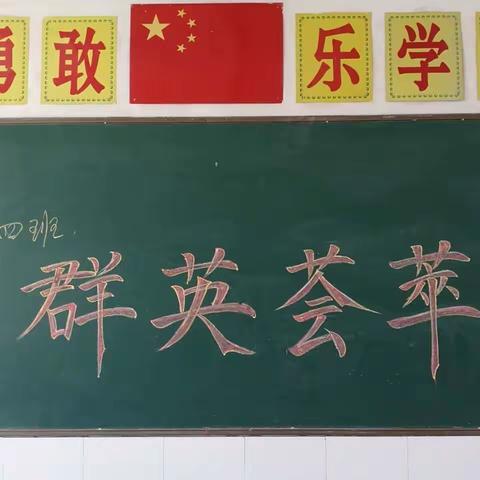 勇敢 乐学
四班.
群英荟萃